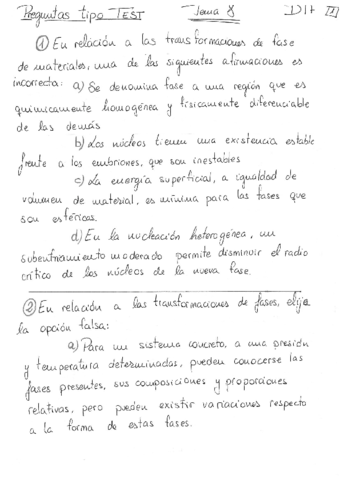 Preguntas tipo TEST Tema 8 DIH
① En relación a las transformaciones de fase
de materiales, una de las siguientes afirmaciones es
incorrecta: a) Se denomina fase a una región que es
quimicamente homogénea y fisicamente diferenciable
de las demás
b) Los núcleos tienen una existencia estable
frente a los embriones, que son inestables
c) La energía superficial, a igualdad de
volumen de material, es mínima para las fases que
son esféricas.
d) En la nucleación heterogénea, un
subenfriamiento moderado permite disminuir el radio
crítico de los núcleos de la nueva fase.
② En relación a las transformaciones de fases, elije
la opción falsa:
a) Para un sistema concreto, a una presión
y temperatura determinadas, pueden conocerse las
fases presentes, sus composiciones y proporciones
relativas, pero pueden existir variaciones respecto
a la forma de estas fases.